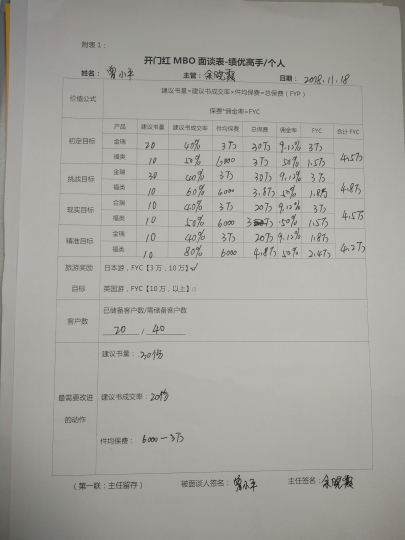 附表1:
开门红 MBO 面谈表-绩优高手/个人
姓名: 曾小平 主管: 余晓霞 日期: 2018.11.18
价值公式 建议书量×建议书成交率×件均保费=总保费(FYP)
保费*佣金率=FYC
产品 建议书量 建议书成交率 件均保费 总保费 佣金率 FYC 合计 FYC
初定目标 金瑞 20 40% 3万 20万 9.12% 3万 4.5万
福类 10 50% 6000 3万 50% 1.5万
挑战目标 金瑞 30 40% 3万 30万 9.12% 3万 4.8万
福类 10 60% 6000 3.6万 50% 1.8万
现实目标 金瑞 10 40% 3万 20万 9.12% 3万 4.5万
福类 10 50% 6000 50% 1.5万
精准目标 金瑞 10 40% 3万 20万 9.12% 1.8万 4.2万
福类 10 80% 6000 4.8万 50% 2.4万
旅游奖励目标 日本游,FYC【3万,10万】√
英国游,FYC【10万,以上】□
客户数 已储备客户数/需储备客户数
20 / 40
最需要改进的动作 建议书量: 30份
建议书成交率: 20份
件均保费: 6000—3万
(第一联:主任留存) 被面谈人签名: 曾小平 主任签名: 余晓霞